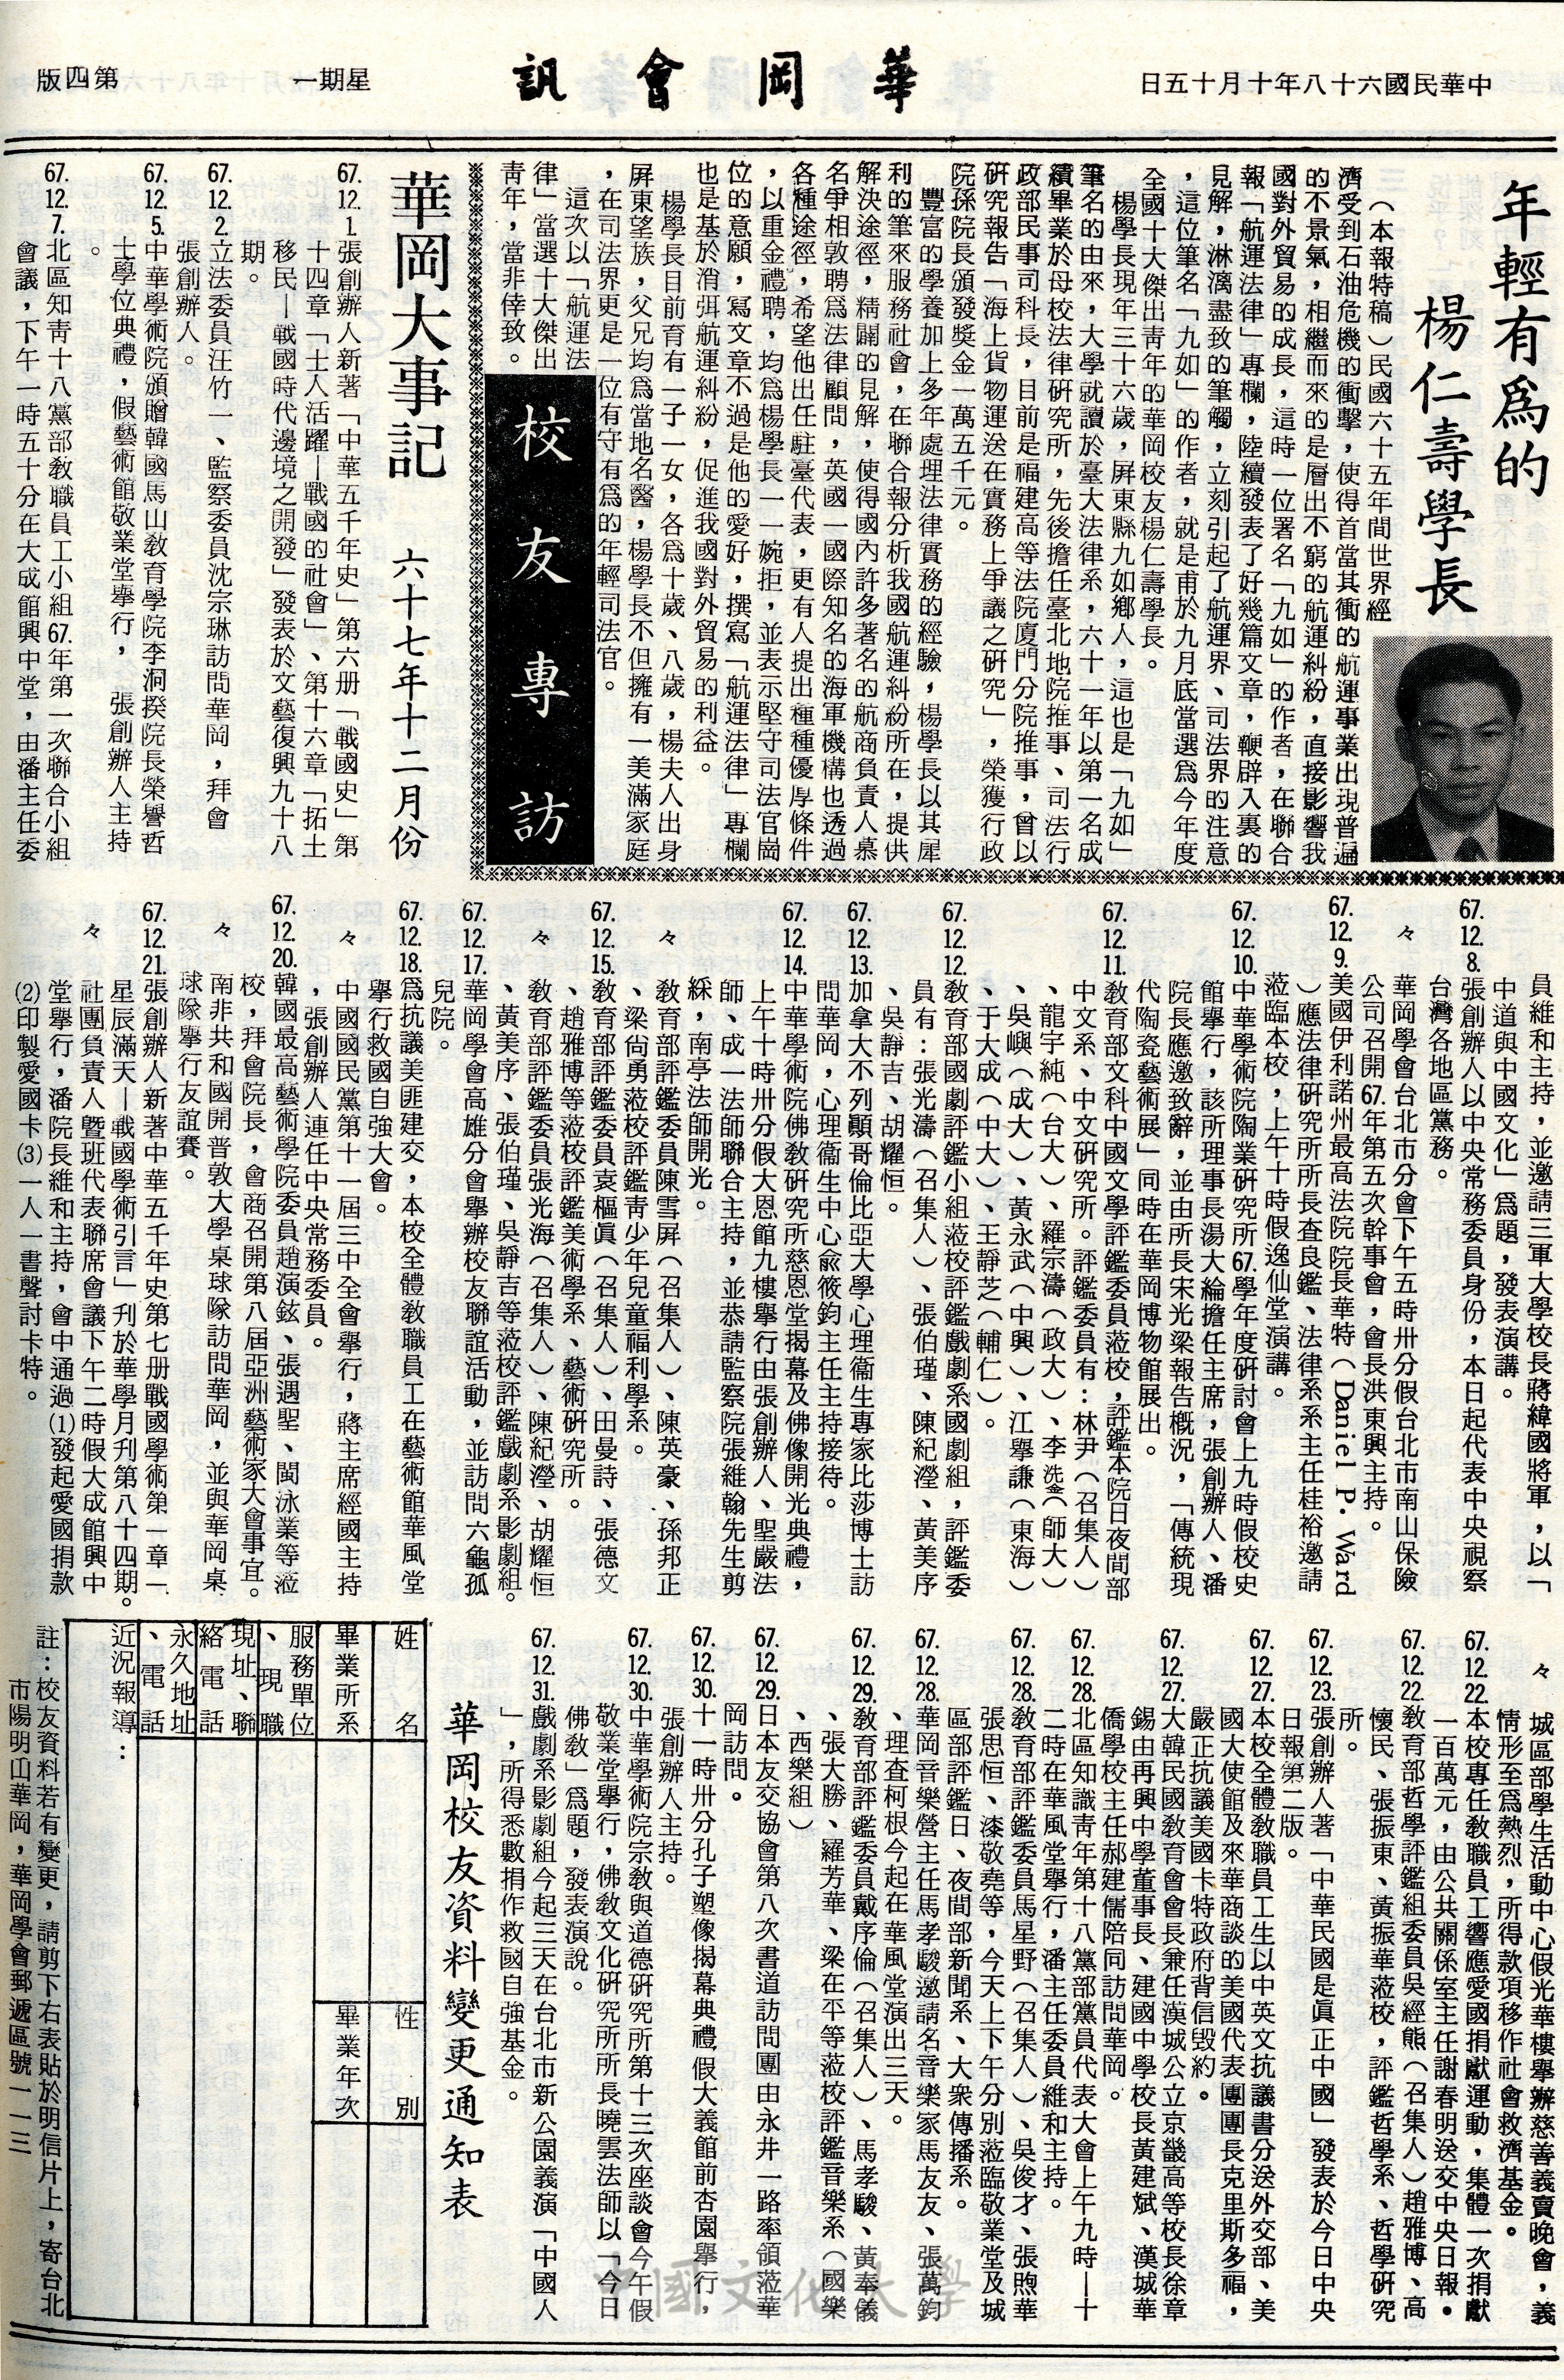 中華民國六十八年十月十五日
華岡會訊
星期一
第四版
年輕有爲的
楊仁壽學長
（本報特稿）民國六十五年間世界經
濟受到石油危機的衝擊，使得首當其衝的航運事業出現普遍
的不景氣，相繼而來的是層出不窮的航運糾紛，直接影響我
國對外貿易的成長，這時一位署名「九如」的作者，在聯合
報「航運法律」專欄，陸續發表了好幾篇文章，鞭辟入裏的
見解，淋漓盡致的筆觸，立刻引起了航運界、司法界的注意
，這位筆名「九如」的作者，就是甫於九月底當選爲今年度
全國十大傑出靑年的華岡校友楊仁壽學長。
楊學長現年三十六歲，屏東縣九如鄕人，這也是「九如」
筆名的由來，大學就讀於臺大法律系，六十一年以第一名成
績畢業於母校法律硏究所，先後擔任臺北地院推事、司法行
政部民事司科長，目前是福建高等法院廈門分院推事，曾以
硏究報告「海上貨物運送在實務上爭議之硏究」，榮獲行政
院孫院長頒發獎金一萬五千元。
豐富的學養加上多年處理法律實務的經驗，楊學長以其犀
利的筆來服務社會，在聯合報分析我國航運糾紛所在，提供
解決途徑，精闢的見解，使得國內許多著名的航商負責人慕
名爭相敦聘爲法律顧問，英國一國際知名的海軍機構也透過
各種途徑，希望他出任駐臺代表，更有人提出種種優厚條件
，以重金禮聘，均爲楊學長一一婉拒，並表示堅守司法官崗
位的意願，寫文章不過是他的愛好，撰寫「航運法律」專欄
也是基於消弭航運糾紛，促進我國對外貿易的利益。
楊學長目前育有一子一女，各爲十歲、八歲，楊夫人出身
屏東望族，父兄均爲當地名醫，楊學長不但擁有一美滿家庭
，在司法界更是一位有守有爲的年輕司法官。
這次以「航運法
律」當選十大傑出
靑年，當非倖致。
校友專訪
華岡大事記
六十七年十二月份
67.12.1.張創辦人新著「中華五千年史」第六册「戰國史」第
十四章「士人活躍—戰國的社會」、第十六章「拓土
移民—戰國時代邊境之開發」發表於文藝復興九十八
期。
67.12.2.立法委員汪竹一、監察委員沈宗琳訪問華岡，拜會
張創辦人。
67.12.5.中華學術院頒贈韓國馬山敎育學院李洞揆院長榮譽哲
士學位典禮，假藝術館敬業堂舉行，張創辦人主持
。
67.12.7.北區知靑十八黨部敎職員工小組67年第一次聯合小組
會議，下午一時五十分在大成館興中堂，由潘主任委
員維和主持，並邀請三軍大學校長蔣緯國將軍，以「
中道與中國文化」爲題，發表演講。
67.12.8.張創辦人以中央常務委員身份，本日起代表中央視察
台灣各地區黨務。
々 華岡學會台北市分會下午五時卅分假台北市南山保險
公司召開67年第五次幹事會，會長洪東興主持。
67.12.9.美國伊利諾州最高法院院長華特（Daniel P. Ward
）應法律硏究所所長査良鑑、法律系系主任桂裕邀請
蒞臨本校，上午十時假逸仙堂演講。
67.12.10.中華學術院陶業硏究所67學年度硏討會上九時假校史
館舉行，該所理事長湯大綸擔任主席，張創辦人、潘
院長應邀致辭，並由所長宋光梁報告概況，「傳統現
代陶瓷藝術展」同時在華岡博物館展出。
67.12.11.敎育部文科中國文學評鑑委員蒞校，評鑑本院日夜間部
中文系、中文硏究所。評鑑委員有：林尹（召集人）
、龍宇純（台大）、羅宗濤（政大）、李鍌（師大）
、吳嶼（成大）、黃永武（中興）、江舉謙（東海）
、于大成（中大）、王靜芝（輔仁）。
67.12.12.敎育部國劇評鑑小組蒞校評鑑戲劇系國劇組，評鑑委
員有：張光濤（召集人）、張伯瑾、陳紀瀅、黃美序
、吳靜吉、胡耀恒。
67.12.13.加拿大不列顚哥倫比亞大學心理衞生專家比莎博士訪
問華岡，心理衞生中心兪筱鈞主任主持接待。
67.12.14.中華學術院佛敎硏究所慈恩堂揭幕及佛像開光典禮，
上午十時卅分假大恩館九樓舉行由張創辦人、聖嚴法
師、成一法師聯合主持，並恭請監察院張維翰先生剪
綵，南亭法師開光。
々 敎育部評鑑委員陳雪屏（召集人）、陳英豪、孫邦正
、梁尙勇蒞校評鑑靑少年兒童福利學系。
67.12.15.敎育部評鑑委員袁樞眞（召集人）、田曼詩、張德文
、趙雅博等蒞校評鑑美術學系、藝術硏究所。
々 敎育部評鑑委員張光海（召集人）、陳紀瀅、胡耀恒
、黃美序、張伯瑾、吳靜吉等蒞校評鑑戲劇系影劇組。
67.12.17.華岡學會高雄分會舉辦校友聯誼活動，並訪問六龜孤
兒院。
67.12.18.爲抗議美匪建交，本校全體敎職員工在藝術館華風堂
舉行救國自強大會。
々 中國國民黨第十一屆三中全會舉行，蔣主席經國主持
，張創辦人連任中央常務委員。
67.12.20.韓國最高藝術學院委員趙演鉉、張遇聖、閔泳業等蒞
校，拜會院長，會商召開第八屆亞洲藝術家大會事宜。
々 南非共和國開普敦大學桌球隊訪問華岡，並與華岡桌
球隊舉行友誼賽。
67.12.21.張創辦人新著中華五千年史第七册戰國學術第一章—
星辰滿天—戰國學術引言」刊於華學月刊第八十四期。
々 社團負責人暨班代表聯席會議下午二時假大成館興中
堂舉行，潘院長維和主持，會中通過⑴發起愛國捐款
⑵印製愛國卡⑶一人一書聲討卡特。
々 城區部學生活動中心假光華樓舉辦慈善義賣晚會，義
情形至爲熱烈，所得款項移作社會救濟基金。
67.12.22.本校專任敎職員工響應愛國捐獻運動，集體一次捐獻
一百萬元，由公共關係室主任謝春明送交中央日報。
67.12.22.敎育部哲學評鑑組委員吳經熊（召集人）趙雅博、高
懷民、張振東、黃振華蒞校，評鑑哲學系、哲學硏究
所。
67.12.23.張創辦人著「中華民國是眞正中國」發表於今日中央
日報第二版。
67.12.27.本校全體敎職員工生以中英文抗議書分送外交部、美
國大使館及來華商談的美國代表團團長克里斯多福，
嚴正抗議美國卡特政府背信毀約。
67.12.27.大韓民國敎育會會長兼任漢城公立京畿高等校長徐章
錫由再興中學董事長、建國中學校長黃建斌、漢城華
僑學校主任郝建儒陪同訪問華岡。
67.12.28.北區知識靑年第十八黨部黨員代表大會上午九時—十
二時在華風堂舉行，潘主任委員維和主持。
67.12.28.敎育部評鑑委員馬星野（召集人）、吳俊才、張煦華
張思恒、漆敬堯等，今天上下午分別蒞臨敬業堂及城
區部評鑑日、夜間部新聞系、大衆傳播系。
67.12.28.華岡音樂營主任馬孝駿邀請名音樂家馬友友、張萬鈞
、理查柯根今起在華風堂演出三天。
67.12.29.敎育部評鑑委員戴序倫（召集人）、馬孝駿、黃奉儀
、張大勝、羅芳華、梁在平等蒞校評鑑音樂系（國樂
、西樂組）
67.12.29.日本友交協會第八次書道訪問團由永井一路率領蒞華
岡訪問。
67.12.30.十一時卅分孔子塑像揭幕典禮假大義館前杏園舉行，
張創辦人主持。
67.12.30.中華學術院宗敎與道德硏究所第十三次座談會今午假
敬業堂舉行，佛敎文化硏究所所長曉雲法師以「今日
佛敎」爲題，發表演說。
67.12.31.戲劇系影劇組今起三天在台北市新公園義演「中國人
」，所得悉數捐作救國自強基金。
華岡校友資料變更通知表
姓名
性別
畢業所系
畢業年次
服務單位、現職
現址、聯絡電話
永久地址、電話
近況報導：
註：校友資料若有變更，請剪下右表貼於明信片上，寄台北
市陽明山華岡，華岡學會郵遞區號一一三
中國文化大學